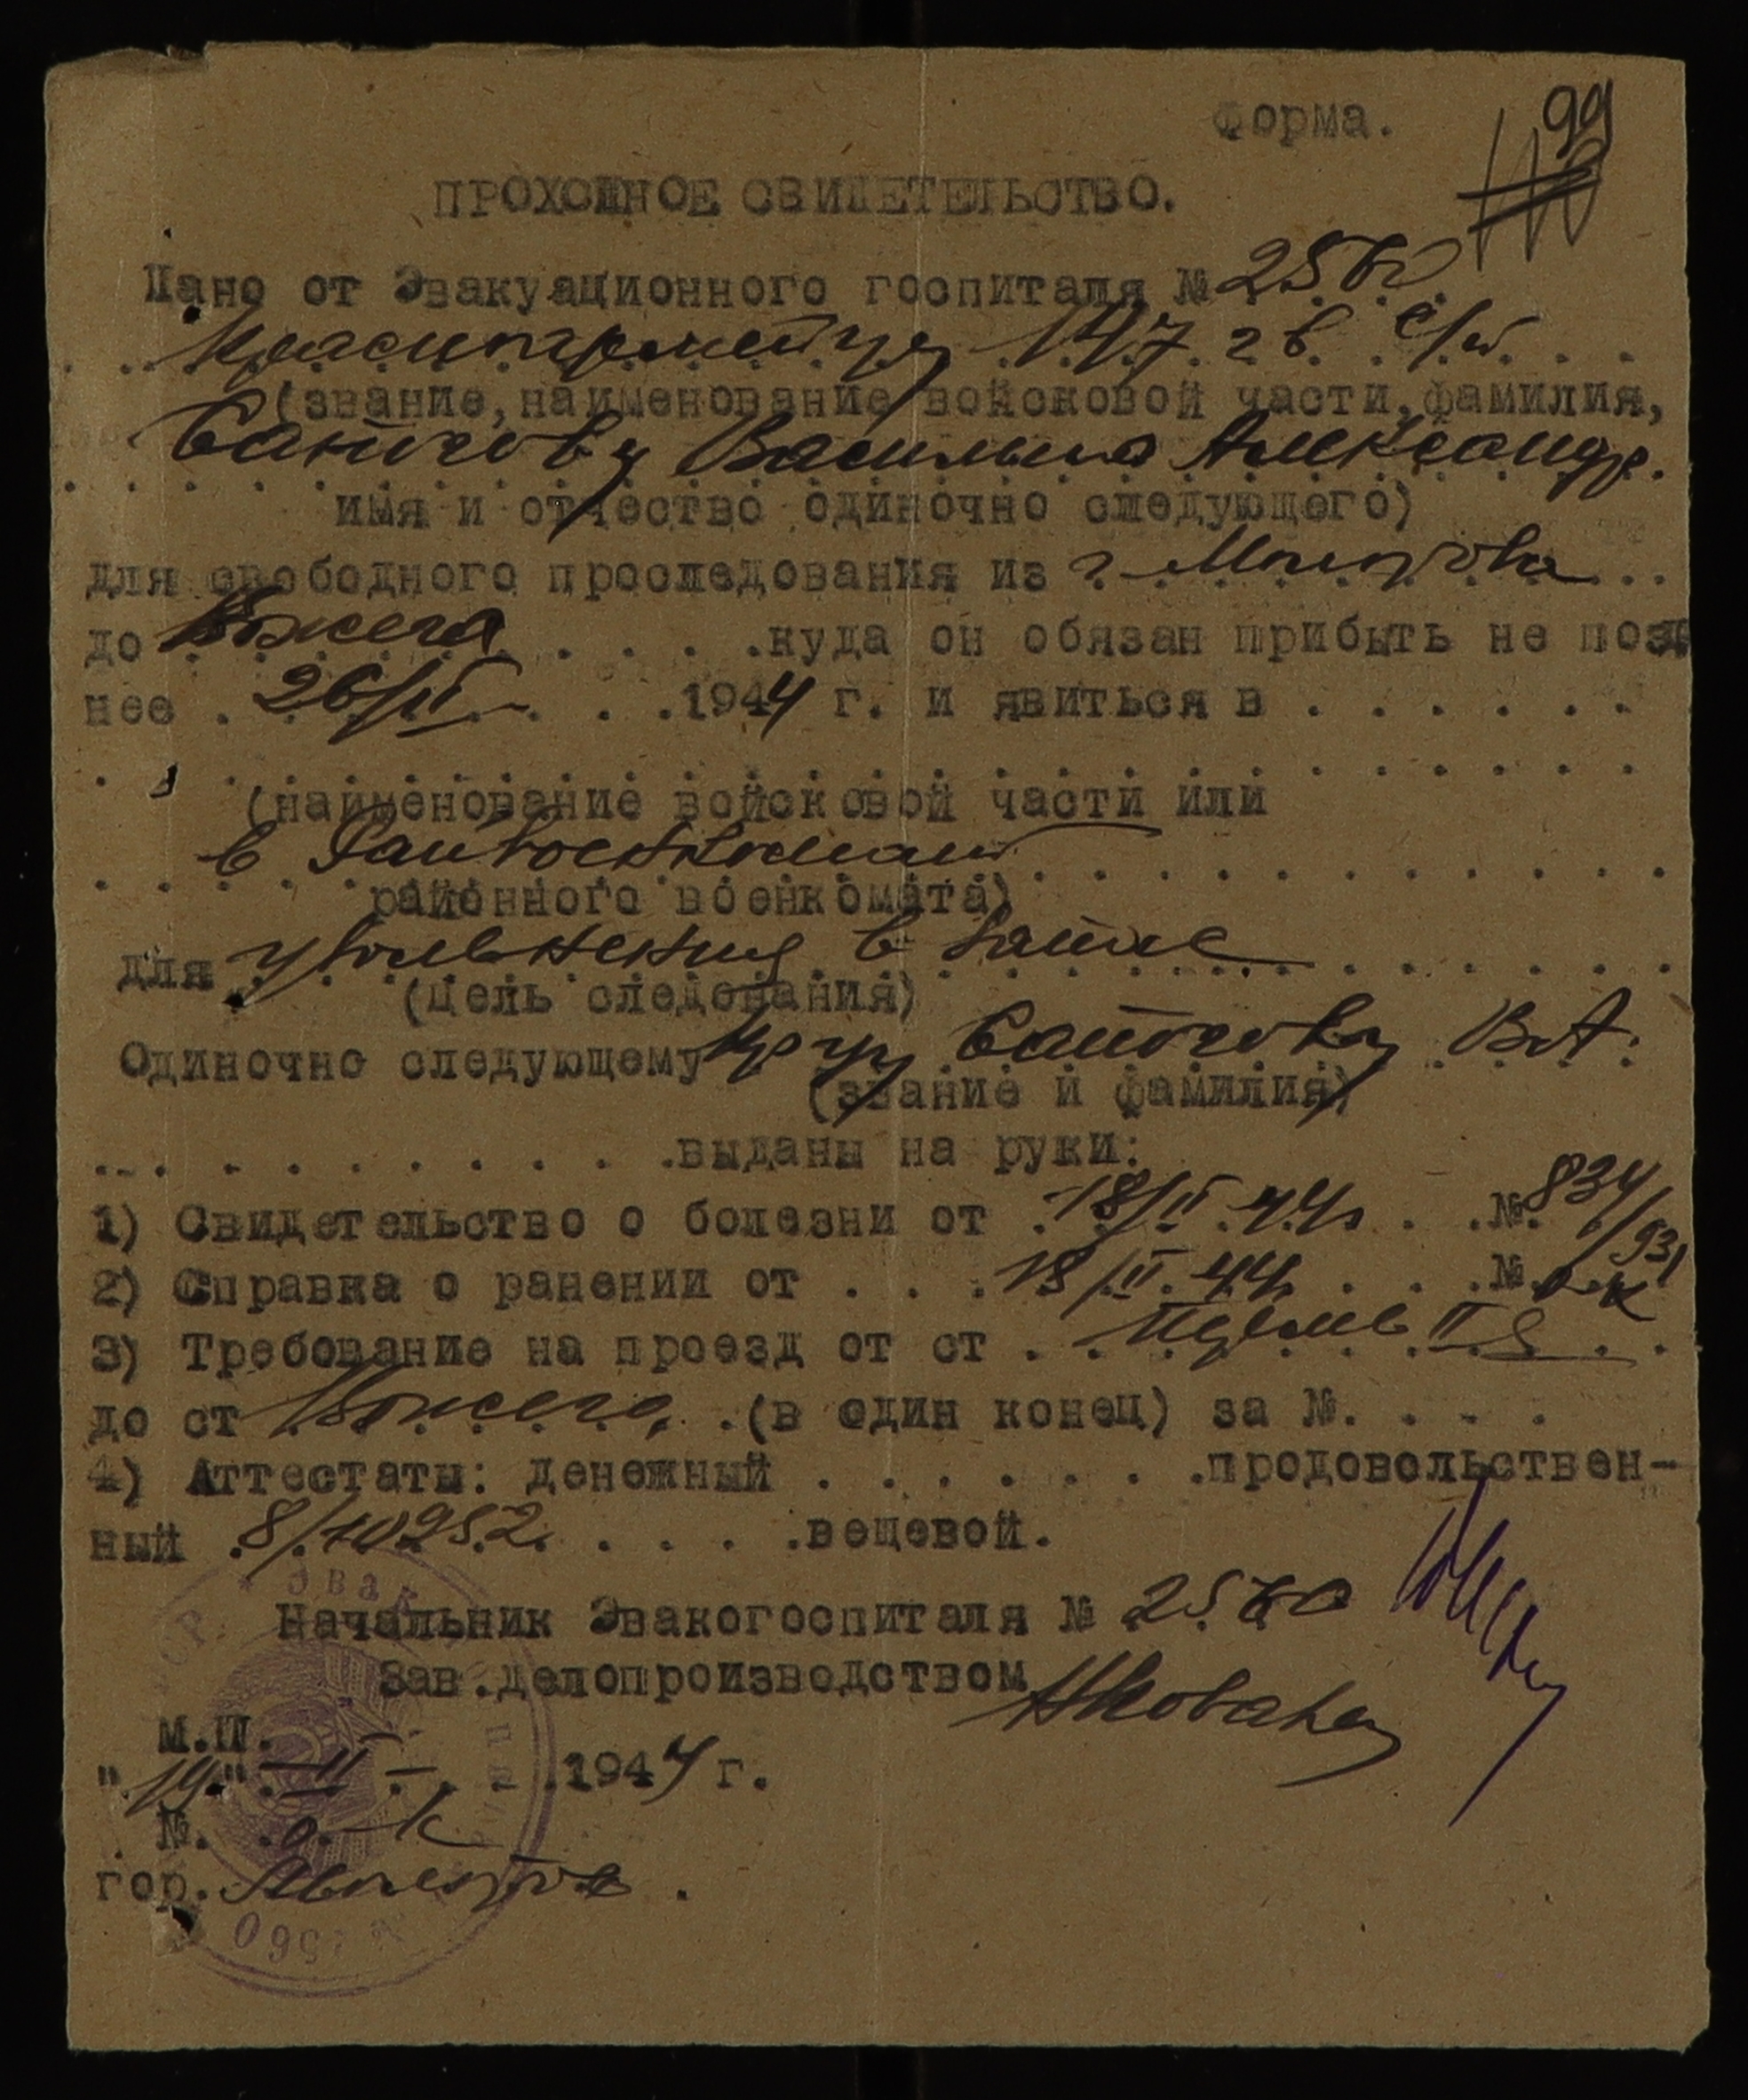 99
Форма.
ПРОХОДНОЕ СВИДЕТЕЛЬСТВО.
Дано от Эвакуационного госпиталя № 2560
Красноармейцу 1472 в с/п
(звание, наименование войсковой части, фамилия,
Василию Александр.
имя и отчество одиночно следующего)
для свободного проследования из г.
до Вожега . . . . . куда он обязан прибыть не позд
нее . 26/II . . . 1944 г. и явиться в . . . . . .
(наименование войсковой части или
в Райвоенкомат
районного военкомата)
для увольнения в
(цель следования)
Одиночно следующему кр-цу В.А.
(звание и фамилия)
. . . . . . . . . . выданы на руки:
1) Свидетельство о болезни от 18/II 44г . . № 834/931
2) Справка о ранении от . . . 18/II.44г. . . . № б-к
3) Требование на проезд от ст . . II
до ст Вожега . (в один конец) за №. . . .
4) Аттестаты: денежный . . . . . . .продовольствен-
ный 8/710252 . . . . .вещевой.
Начальник Эвакогоспиталя № 2560
Зав.делопроизводством
М.П.
"19" II . . . 1944 г.
№. б-к
гор.